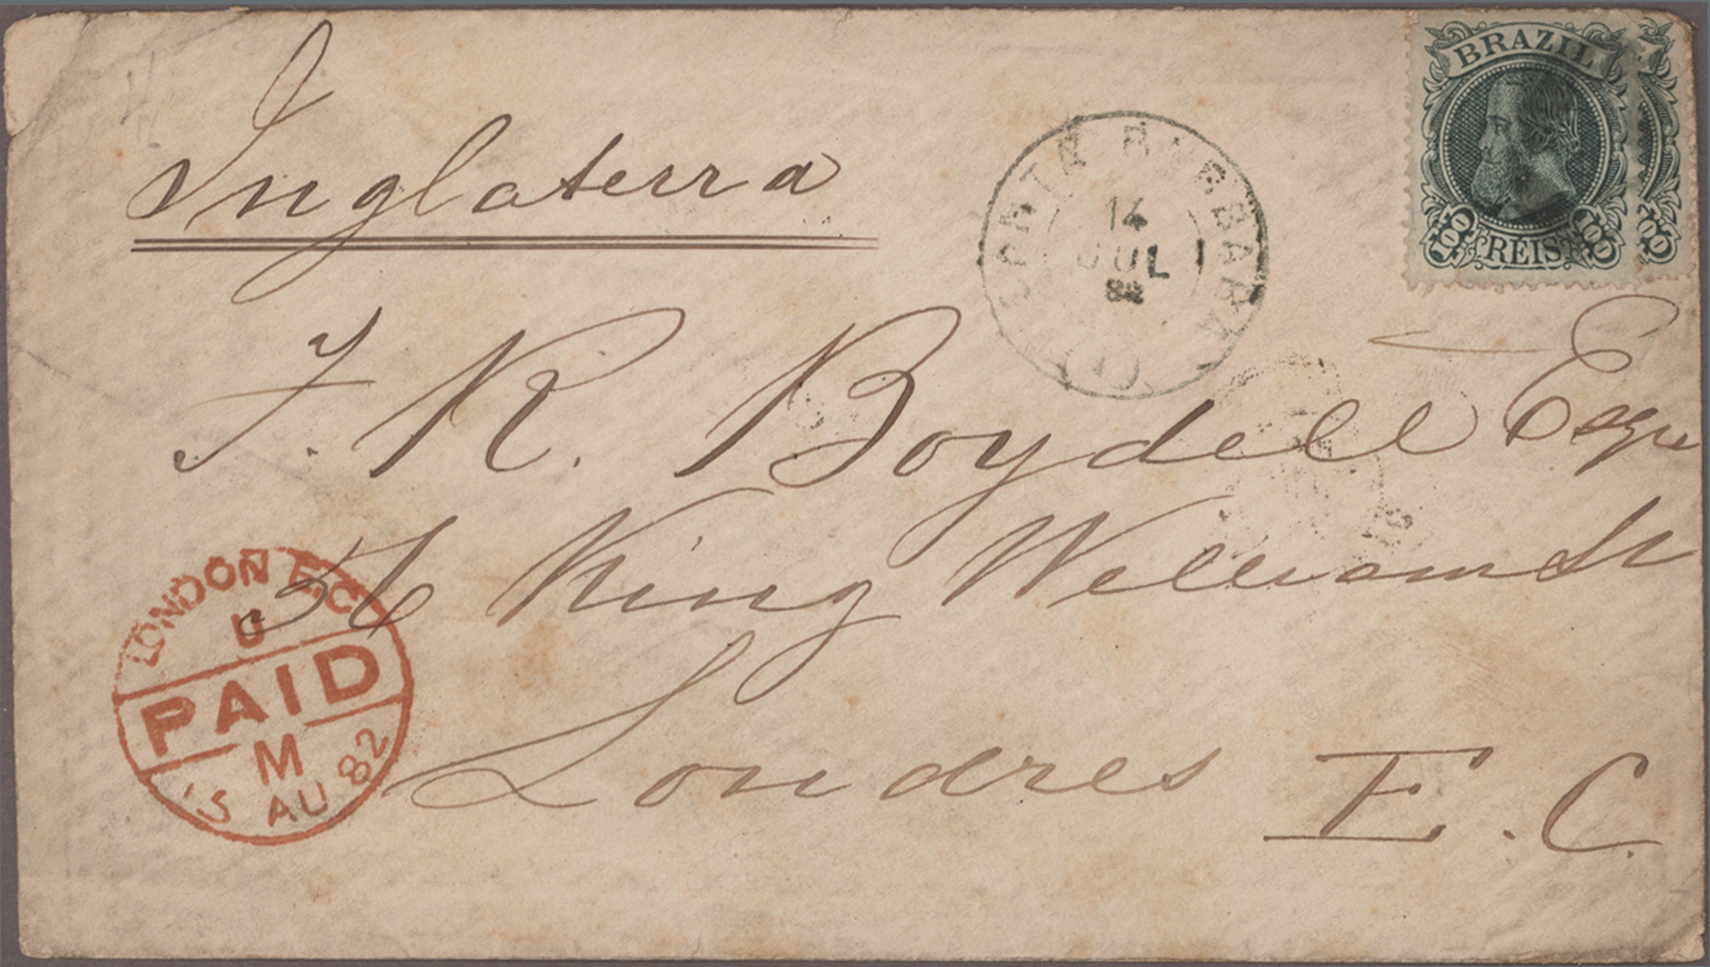 BRAZIL
100 REIS 100
100
Inglaterra
SANTA BARBARA
14
JUL
82
J. R. Boydell Esqre
36 King William St
Londres E.C.
LONDON E.C.
U
PAID
M
5 AU 82